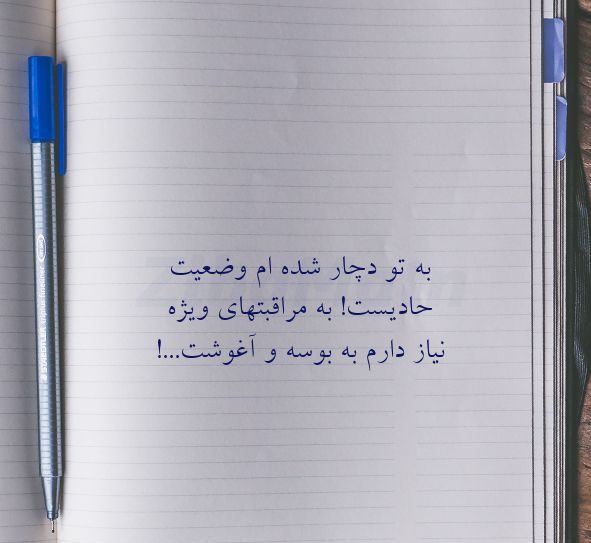 به تو دچار شده ام وضعیت
حادیست! به مراقبتهای ویژه
نیاز دارم به بوسه و آغوشت...!